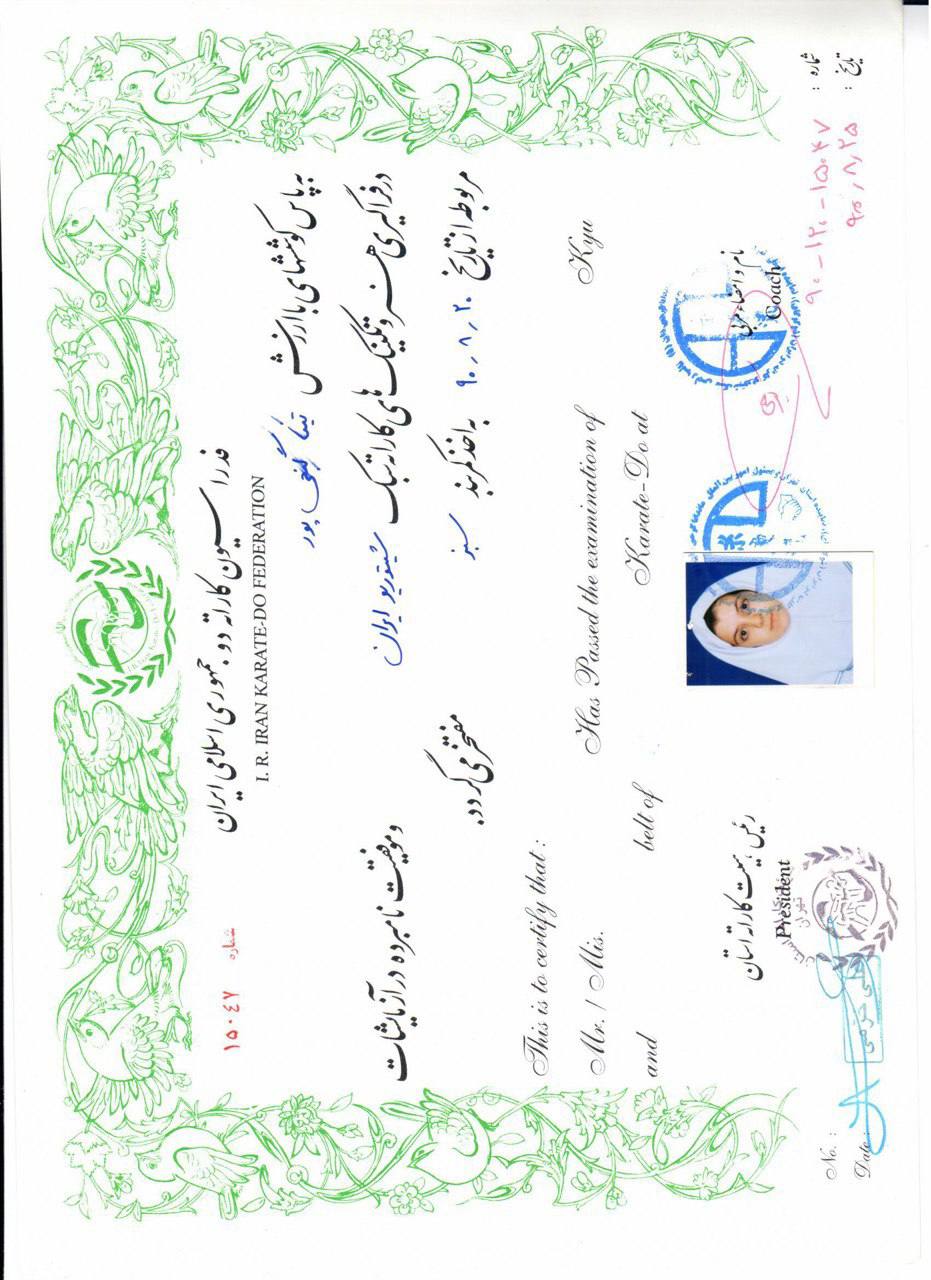 فدراسیون کاراته دو جمهوری اسلامی ایران
شماره ۱۵۰۴۷
I. R. IRAN KARATE-DO FEDERATION
به پاس کوششهای باارزش تینا گنجی پور
درفراگیری هنر و تکنیک های کاراته سبک شیتوریو ایران وموفقیت نامبرده درآزمایشات
مربوطه از تاریخ ۹۰٫۸٫۲۰ به اخذ کمربند سبز مفتخر می گردد.
This is to certify that :
Mr. / Mis. Has Passed the examination of Kyu
and belt of Karate-Do at
رئیس هیئت کاراته استان
President
نام و امضاء مربی
Coach
No. :
Date :
علی حزمی
تهران
شماره : ۹۰-۱۲۰-۱۵۰۴۷
تاریخ : ۹۰٫۸٫۲۵